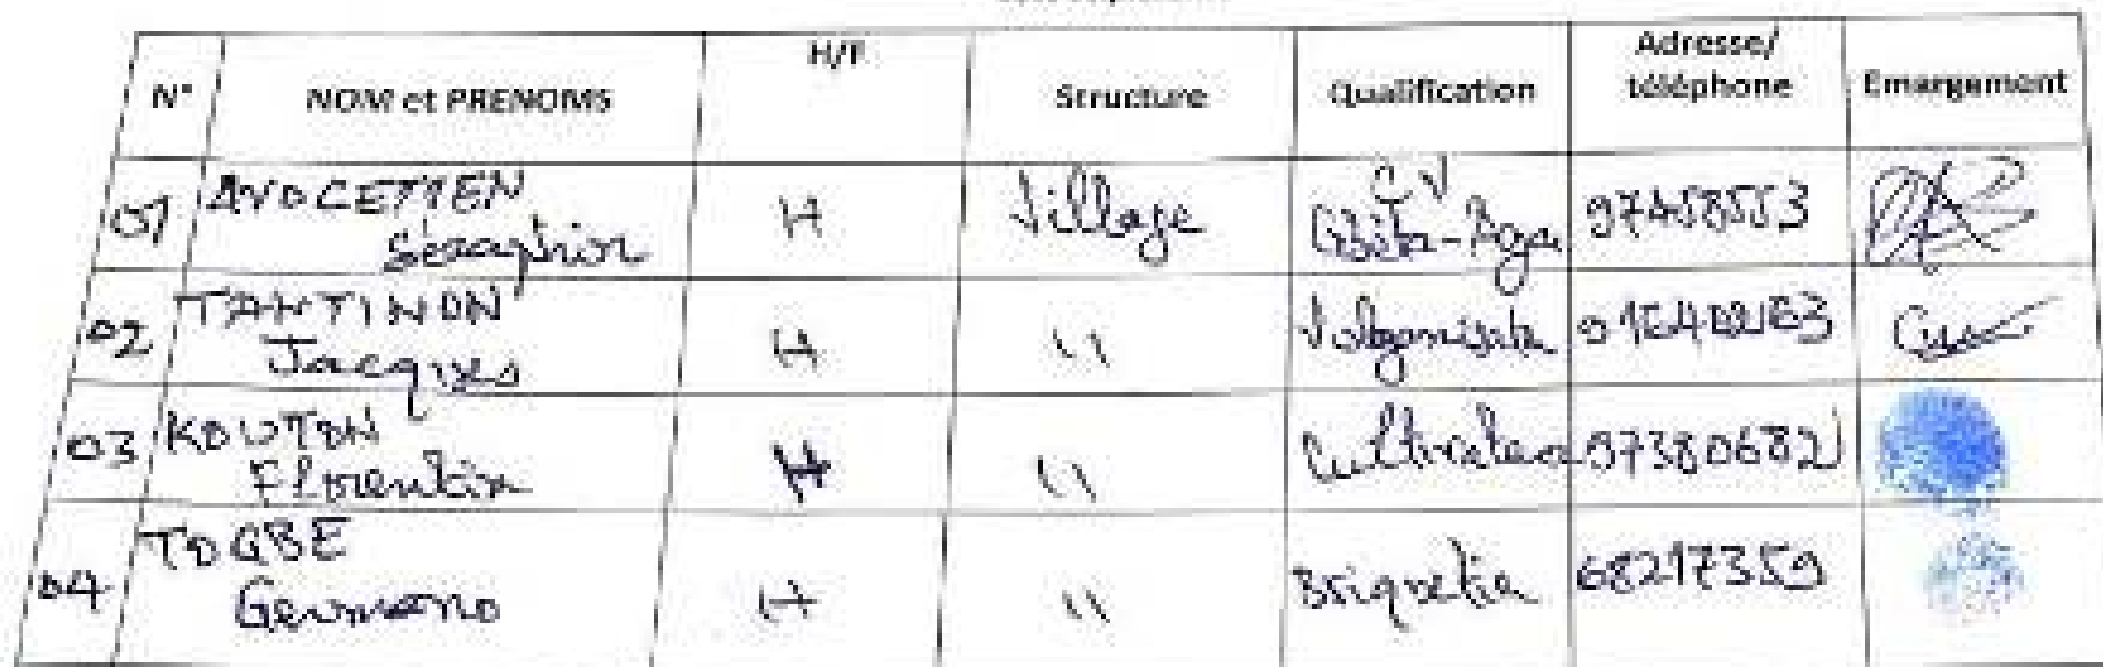 N° NOM et PRENOMS H/F Structure Qualification Adresse/ téléphone Emargement
01 AVOCETIEN Séraphin H Village CV Gbita-Aga 97458553
02 TANTINON Jacques H 11
03 KOUTON Florentin H 11 Cultivateur 97380682
04 TOGBE Germano H 11 Briquetier 68217359